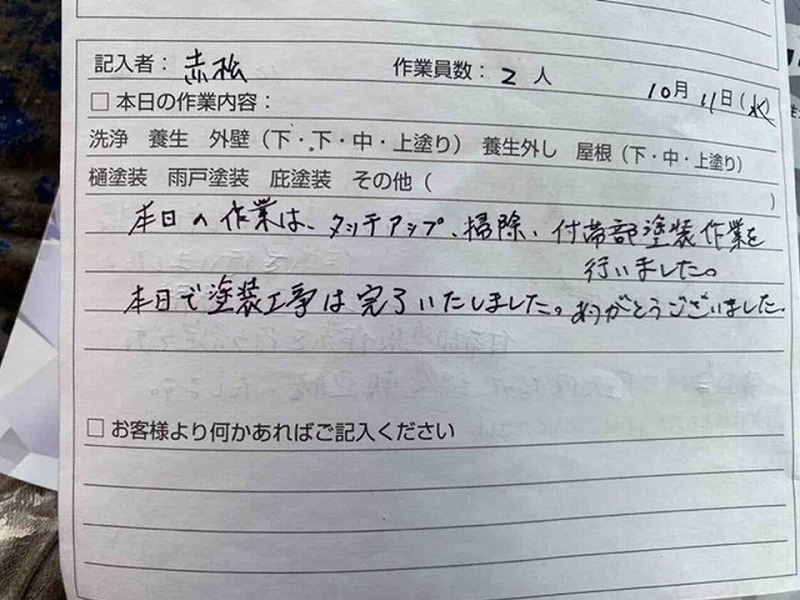 記入者：赤松 作業員数：2人 10月11日(水)
□ 本日の作業内容：
洗浄 養生 外壁（下・下・中・上塗り） 養生外し 屋根（下・中・上塗り）
樋塗装 雨戸塗装 庇塗装 その他（ ）
本日の作業は、タッチアップ、掃除、付帯部塗装作業を
行いました。
本日で塗装工事は完了いたしました。ありがとうございました。
□ お客様より何かあればご記入ください